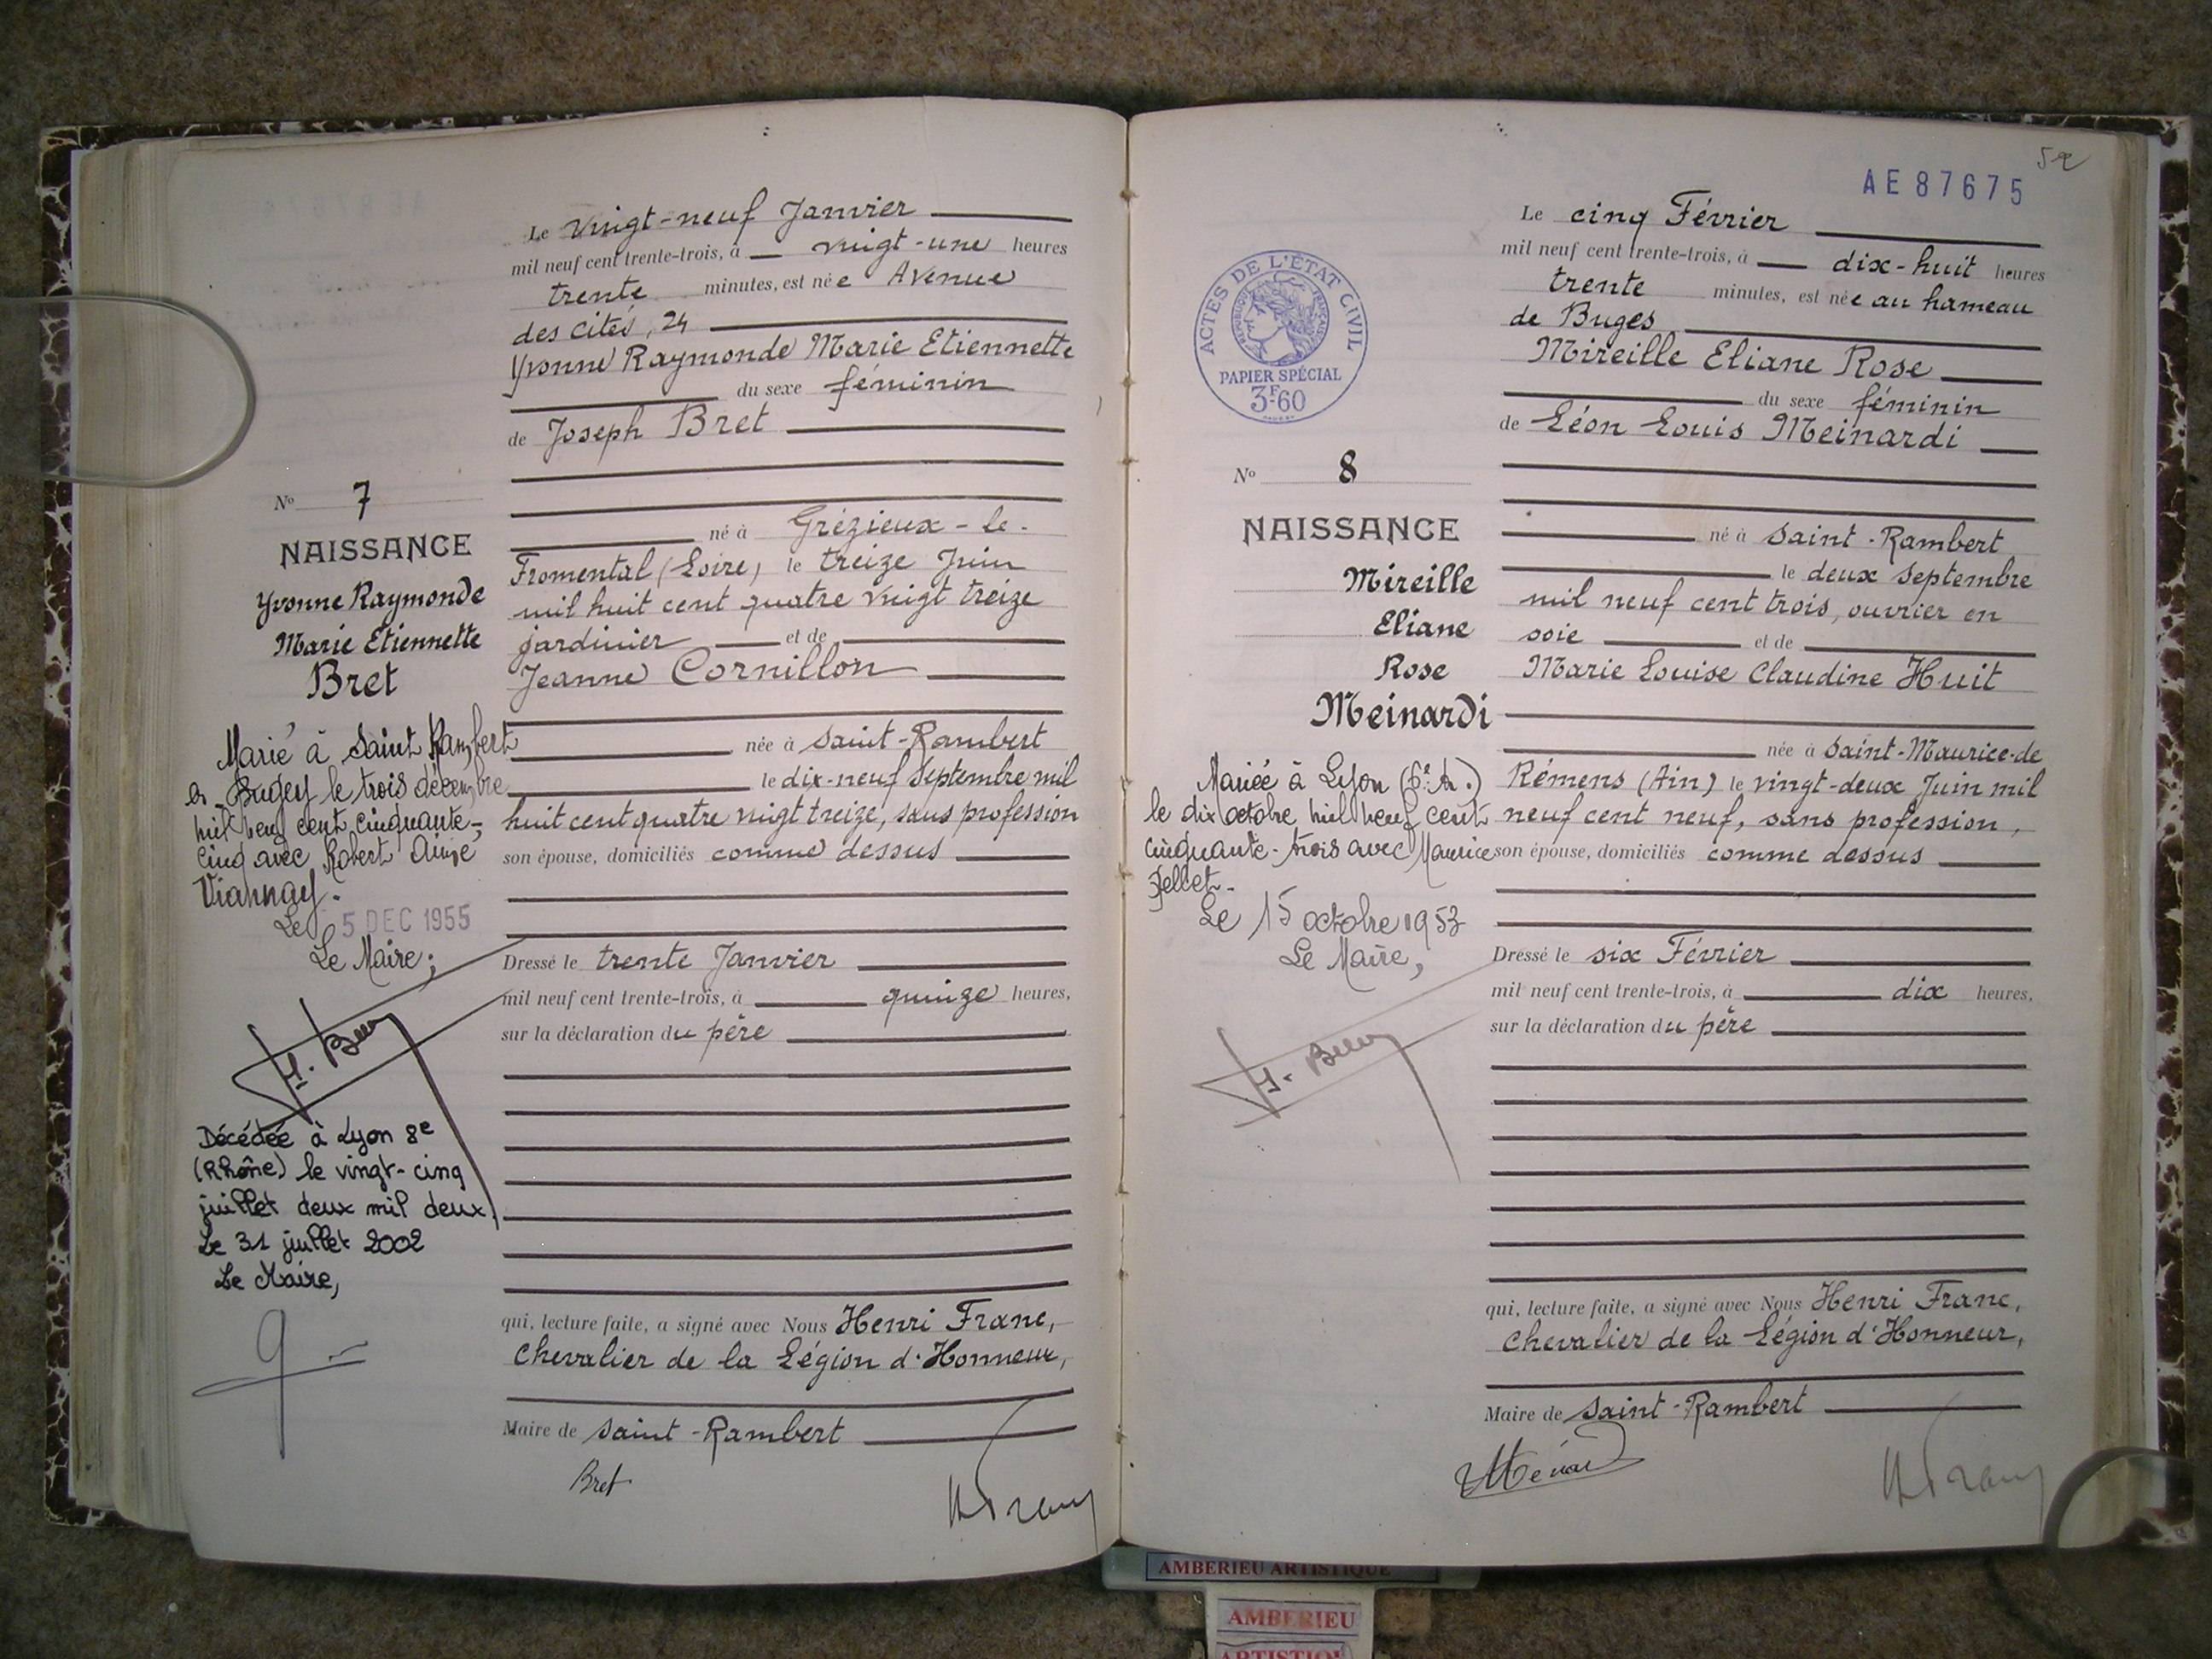 Le vingt-neuf Janvier
mil neuf cent trente-trois, à vingt-une heures
trente minutes, est née Avenue
des cités, 24
Yvonne Raymonde Marie Etiennette
du sexe féminin
de Joseph Bret
né à Grézieux-le-
Fromental (Loire) le treize Juin
mil huit cent quatre vingt treize
jardinier et de
Jeanne Cornillon
née à Saint-Rambert
le dix-neuf Septembre mil
huit cent quatre vingt treize, sans profession
son épouse, domiciliés comme dessus
Dressé le trente Janvier
mil neuf cent trente-trois, à quinze heures,
sur la déclaration du père
qui, lecture faite, a signé avec Nous Henri Franc,
Chevalier de la Légion d'Honneur,
Maire de Saint-Rambert
Bret
No 7
NAISSANCE
Yvonne Raymonde
Marie Etiennette
Bret
Marié à Saint Rambert
en Bugey le trois décembre
mil neuf cent cinquante-
cinq avec Robert Aimé
Viannay.
Le 5 DEC 1955
Le Maire;
Décédée à Lyon 8e
(Rhône) le vingt-cinq
juillet deux mil deux.
Le 31 juillet 2002
Le Maire,
AE87675
Le cinq Février
mil neuf cent trente-trois, à dix-huit heures
trente minutes, est née au hameau
de Buges
Mireille Eliane Rose
du sexe féminin
de Léon Louis Meinardi
né à Saint-Rambert
le deux Septembre
mil neuf cent trois, ouvrier en
soie et de
Marie Louise Claudine Huit
née à Saint-Maurice-de
Rémens (Ain) le vingt-deux Juin mil
neuf cent neuf, sans profession,
son épouse, domiciliés comme dessus
Dressé le six Février
mil neuf cent trente-trois, à dix heures,
sur la déclaration du père
qui, lecture faite, a signé avec Nous Henri Franc,
Chevalier de la Légion d'Honneur,
Maire de Saint-Rambert
ACTES DE L'ÉTAT CIVIL
RÉPUBLIQUE FRANÇAISE
PAPIER SPÉCIAL
3F.60
No 8
NAISSANCE
Mireille
Eliane
Rose
Meinardi
Mariée à Lyon (6e A.)
le dix octobre mil neuf cent
cinquante-trois avec Maurice
Le 15 octobre 1953
Le Maire,
AMBERIEU ARTISTIQUE
AMBERIEU
ARTISTIQUE